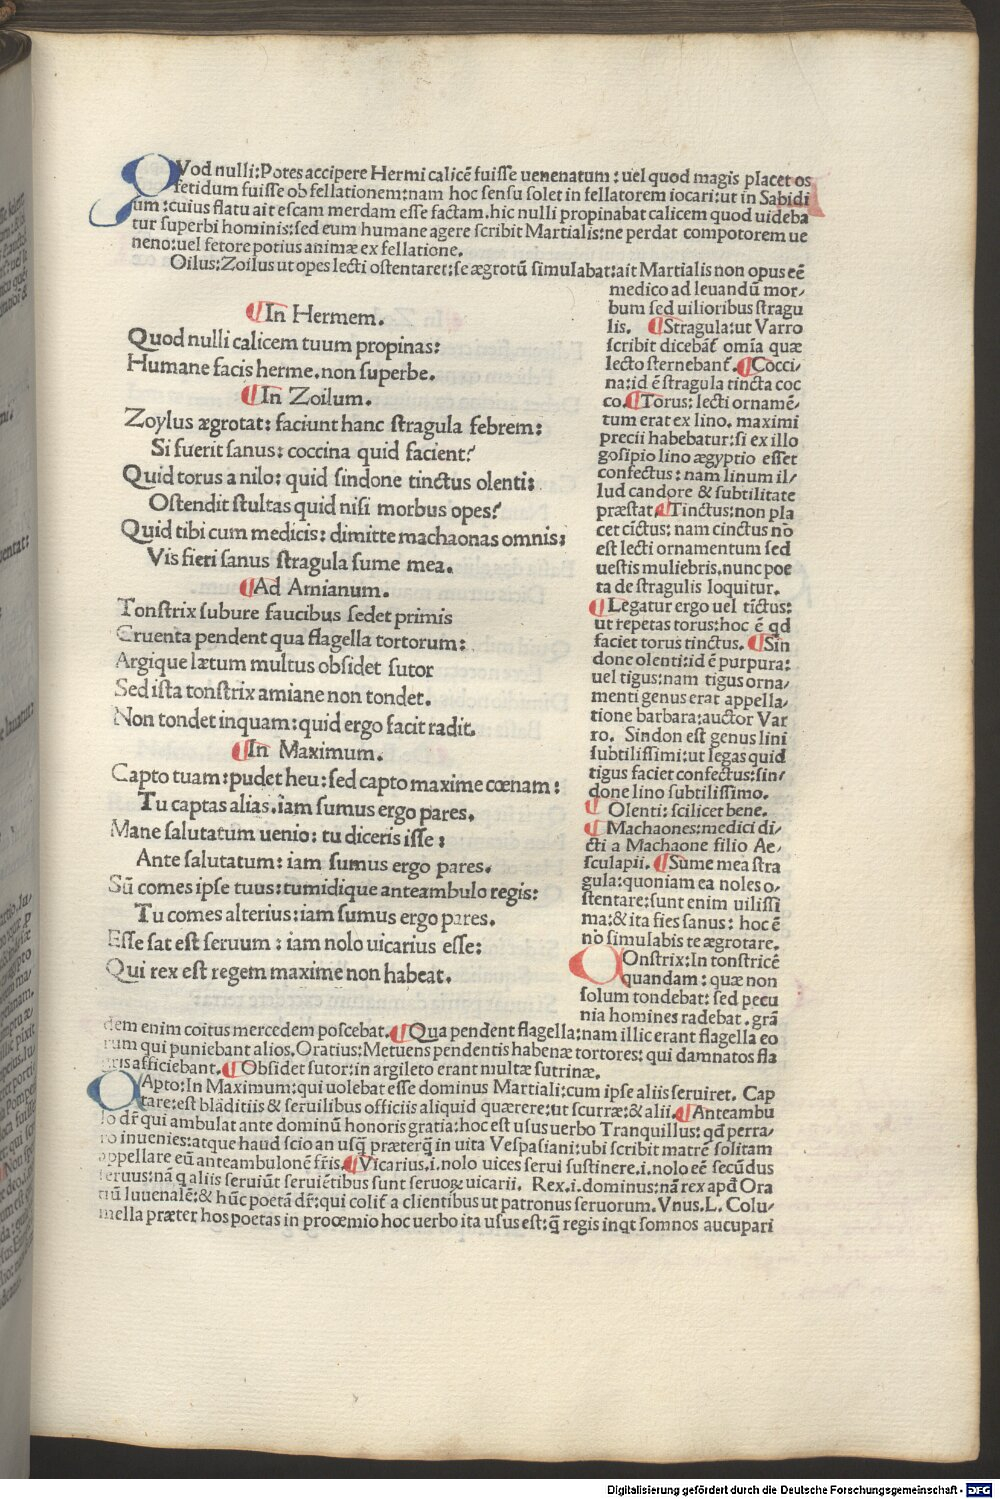 QVod nulli:Potes accipere Hermi calicē fuiſſe uenenatum: uel quod magis placet os
fetidum fuiſſe ob fellationem:nam hoc ſenſu ſolet in fellatorem iocari:ut in Sabidi
um:cuius flatu ait eſcam merdam eſſe factam.hic nulli propinabat calicem quod uideba
tur ſuperbi hominis:ſed eum humane agere ſcribit Martialis:ne perdat compotorem ue
neno:uel fetore potius animæ ex fellatione.
Oilus:Zoilus ut opes lecti oſtentaret:ſe ægrotū ſimulabat:ait Martialis non opus eē
medico ad leuandū mor⸗
bum ſed uilioribus ſtragu
lis. ¶Stragula:ut Varro
ſcribit dicebāt omīa quæ
lecto ſternebant. ¶Cocci⸗
na:id ē ſtragula tincta coc
co.¶Torus:lecti ornamē⸗
tum erat ex lino. maximi
precii habebatur:ſi ex illo
goſipio lino ægyptio eſſet
confectus:nam linum il⸗
lud candore & ſubtilitate
præſtat.¶Tinctus:non pla
cet cīctus: nam cinctus nō
eſt lecti ornamentum ſed
ueſtis muliebris.nunc poe
ta de ſtragulis loquitur.
¶Legatur ergo uel tīctus:
ut repetas torus:hoc ē qd
faciet torus tinctus. ¶Sin
done olenti:id ē purpura:
uel tigus:nam tigus orna⸗
menti genus erat appella⸗
tione barbara:auctor Var
ro. Sindon eſt genus lini
ſubtiliſſimi:ut legas quid
tigus faciet confectus:ſin⸗
done lino ſubtiliſſimo.
¶ Olenti:ſcilicet bene.
¶Machaones:medici di⸗
cti a Machaone filio Ae⸗
ſculapii. ¶Sume mea ſtra
gula:quoniam ea noles o⸗
ſtentare:ſunt enim uiliſſi
ma:& ita fies ſanus: hoc ē
nō ſimulabis te ægrotare.
Onſtrix:In tonſtricē
quandam: quæ non
ſolum tondebat: ſed pecu
nia homines radebat.grā
¶In Hermem.
Quod nulli calicem tuum propinas:
Humane facis herme.non ſuperbe.
¶In Zoilum.
Zoylus ægrotat: faciunt hanc ſtragula febrem:
Si fuerit ſanus: coccina quid facient?
Quid torus a nilo: quid ſindone tinctus olenti:
Oſtendit ſtultas quid niſi morbus opes?
Quid tibi cum medicis: dimitte machaonas omnis:
Vis fieri ſanus ſtragula ſume mea.
¶Ad Amianum.
Tonſtrix ſubure faucibus ſedet primis
Cruenta pendent qua flagella tortorum:
Argique lætum multus obſidet ſutor
Sed iſta tonſtrix amiane non tondet.
Non tondet inquam:quid ergo facit radit.
¶In Maximum.
Capto tuam:pudet heu:ſed capto maxime cœnam:
Tu captas alias.iam ſumus ergo pares.
Mane ſalutatum uenio: tu diceris iſſe:
Ante ſalutatum: iam ſumus ergo pares.
Sū comes ipſe tuus:tumidique anteambulo regis:
Tu comes alterius:iam ſumus ergo pares.
Eſſe ſat eſt ſeruum: iam nolo uicarius eſſe:
Qui rex eſt regem maxime non habeat.
dem enim coitus mercedem poſcebat.¶Qua pendent flagella:nam illic erant flagella eo
rum qui puniebant alios.Oratius:Metuens pendentis habenæ tortores: qui damnatos fla
gris afficiebant.¶Obſidet ſutor:in argileto erant multæ ſutrinæ.
CApto:In Maximum:qui uolebat eſſe dominus Martiali:cum ipſe aliis ſeruiret. Cap
tare:eſt blāditiis & ſeruilibus officiis aliquid quærere:ut ſcurræ:& alii.¶Anteambu
lo dr̄ qui ambulat ante dominū honoris gratia:hoc eſt uſus uerbo Tranquillus:qd perra⸗
ro inuenies:atque haud ſcio an uſq̄ præterq̄ in uita Veſpaſiani:ubi ſcribit matrē ſolitam
appellare eū anteambulonē fr̄is.¶Vicarius.i.nolo uices ſerui ſuſtinere.i.nolo eē ſecūdus
ſeruus:nā q aliis ſeruiūt ſeruiētibus ſunt ſeruoꝝ uicarii. Rex.i.dominus:nā rex apd̄ Ora
tiū Iuuenalē:& hūc poetā dr̄:qui colit̄ a clientibus ut patronus ſeruorum.Vnus.L. Colu⸗
mella præter hos poetas in proœmio hoc uerbo ita uſus eſt:q̄ regis inqt ſomnos aucupari
Digitalisierung gefördert durch die Deutsche Forschungsgemeinschaft - DFG